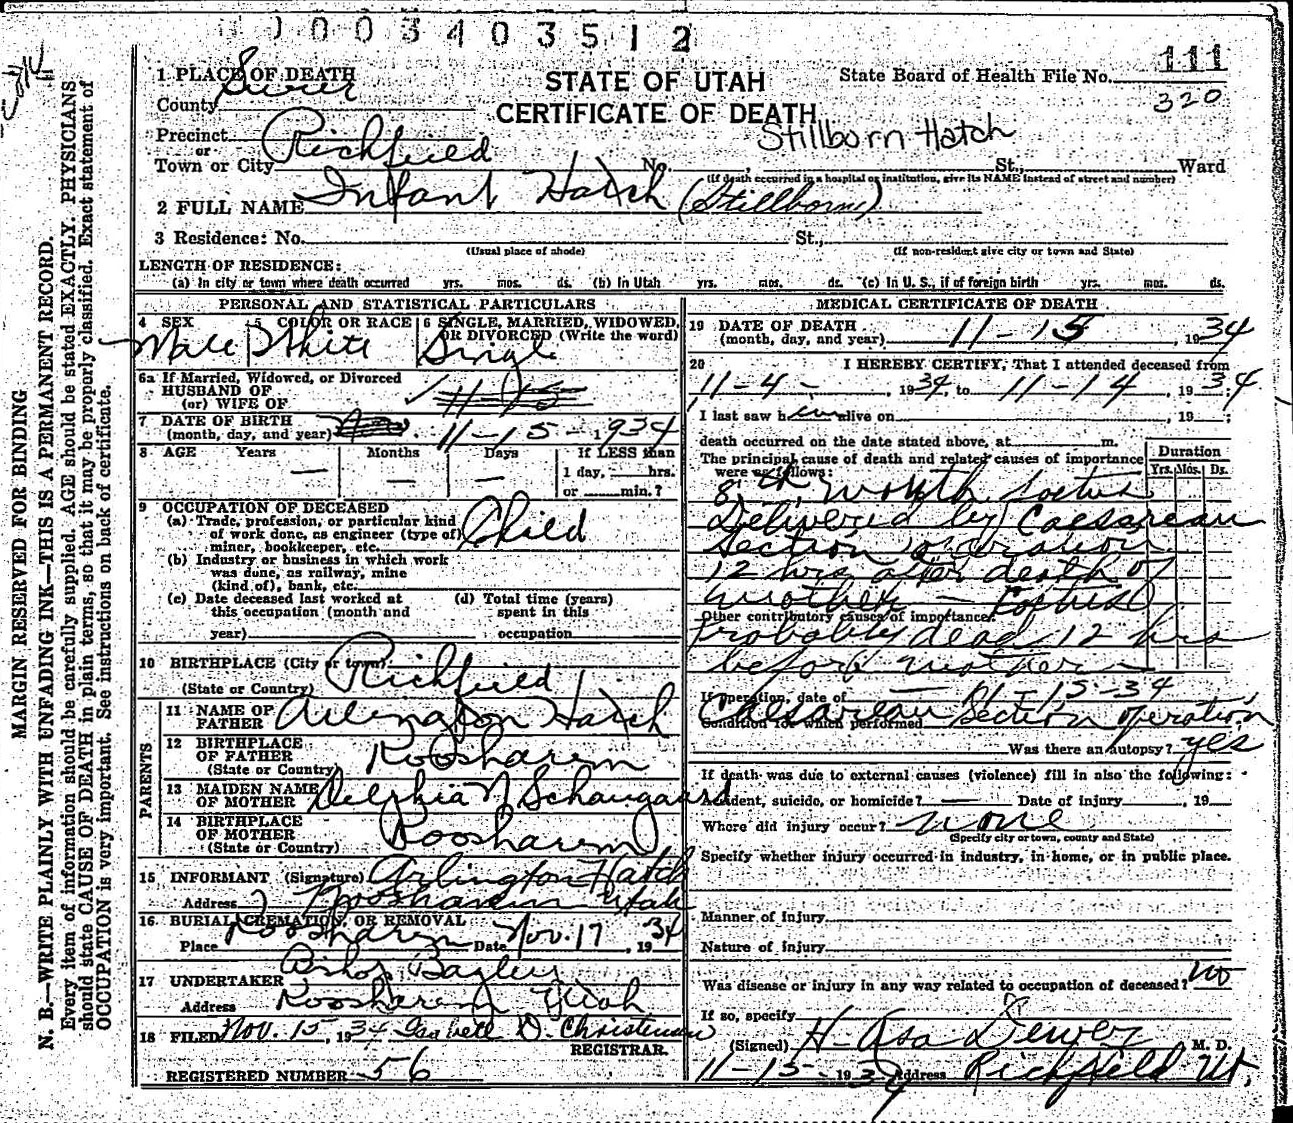 0 0 3 4 0 3 5 1 2
1 PLACE OF DEATH
STATE OF UTAH
State Board of Health File No. 111
County Sevier
CERTIFICATE OF DEATH
320
Precinct
or
Stillborn Hatch
Town or City Richfield No. St., Ward
(If death occurred in a hospital or institution, give its NAME instead of street and number)
2 FULL NAME Infant Hatch (Stillborn)
3 Residence: No. St.,
(Usual place of abode) (If non-resident give city or town and State)
LENGTH OF RESIDENCE:
(a) In city or town where death occurred yrs. mos. ds. (b) In Utah yrs. mos. ds. (c) In U. S., if of foreign birth yrs. mos. ds.
PERSONAL AND STATISTICAL PARTICULARS
4 SEX 5 COLOR OR RACE 6 SINGLE, MARRIED, WIDOWED,
OR DIVORCED (Write the word)
Male White Single
6a If Married, Widowed, or Divorced
HUSBAND OF
(or) WIFE OF
7 DATE OF BIRTH
(month, day, and year) 11-15-1934
8 AGE Years Months Days If LESS than
1 day, hrs.
or min.?
9 OCCUPATION OF DECEASED
(a) Trade, profession, or particular kind
of work done, as engineer (type of)
miner, bookkeeper, etc. Child
(b) Industry or business in which work
was done, as railway, mine
(kind of), bank, etc.
(c) Date deceased last worked at
this occupation (month and
year)
(d) Total time (years)
spent in this
occupation
10 BIRTHPLACE (City or town)
(State or Country) Richfield
PARENTS
11 NAME OF
FATHER Arlington Hatch
12 BIRTHPLACE
OF FATHER
(State or Country) Koosharem
13 MAIDEN NAME
OF MOTHER Delphia N Schaugaard
14 BIRTHPLACE
OF MOTHER
(State or Country) Koosharem
15 INFORMANT (Signature) Arlington Hatch
Address Koosharem Utah
16 BURIAL, CREMATION, OR REMOVAL
Place Koosharem Date Nov. 17, 1934
17 UNDERTAKER Bishop Bagley
Address Koosharem Utah
18 FILED Nov. 15, 1934 D. Christensen
REGISTRAR.
REGISTERED NUMBER 56
MEDICAL CERTIFICATE OF DEATH
19 DATE OF DEATH
(month, day, and year) 11-15, 1934
20 I HEREBY CERTIFY, That I attended deceased from
11-4-, 1934, to 11-14, 1934;
I last saw h alive on , 19 ;
death occurred on the date stated above, at m.
The principal cause of death and related causes of importance
were as follows:
Duration
Yrs. Mos. Ds.
8th month foetus
Delivered by Caesarean
Section operation
12 hrs after death of
mother - Foetus
Other contributory causes of importance:
probably dead 12 hrs
before mother
If operation, date of 11-15-34
Condition for which performed Caesarean Section operation
Was there an autopsy? yes
If death was due to external causes (violence) fill in also the following:
Accident, suicide, or homicide? Date of injury , 19
Where did injury occur? none
(Specify city or town, county and State)
Specify whether injury occurred in industry, in home, or in public place.
Manner of injury
Nature of injury
Was disease or injury in any way related to occupation of deceased? no
If so, specify
(Signed) H. Asa Dewey M. D.
11-15- 1934 Address Richfield Ut.
MARGIN RESERVED FOR BINDING
N. B.—WRITE PLAINLY WITH UNFADING INK—THIS IS A PERMANENT RECORD.
Every item of information should be carefully supplied. AGE should be stated EXACTLY. PHYSICIANS
should state CAUSE OF DEATH in plain terms, so that it may be properly classified. Exact statement of
OCCUPATION is very important. See instructions on back of certificate.